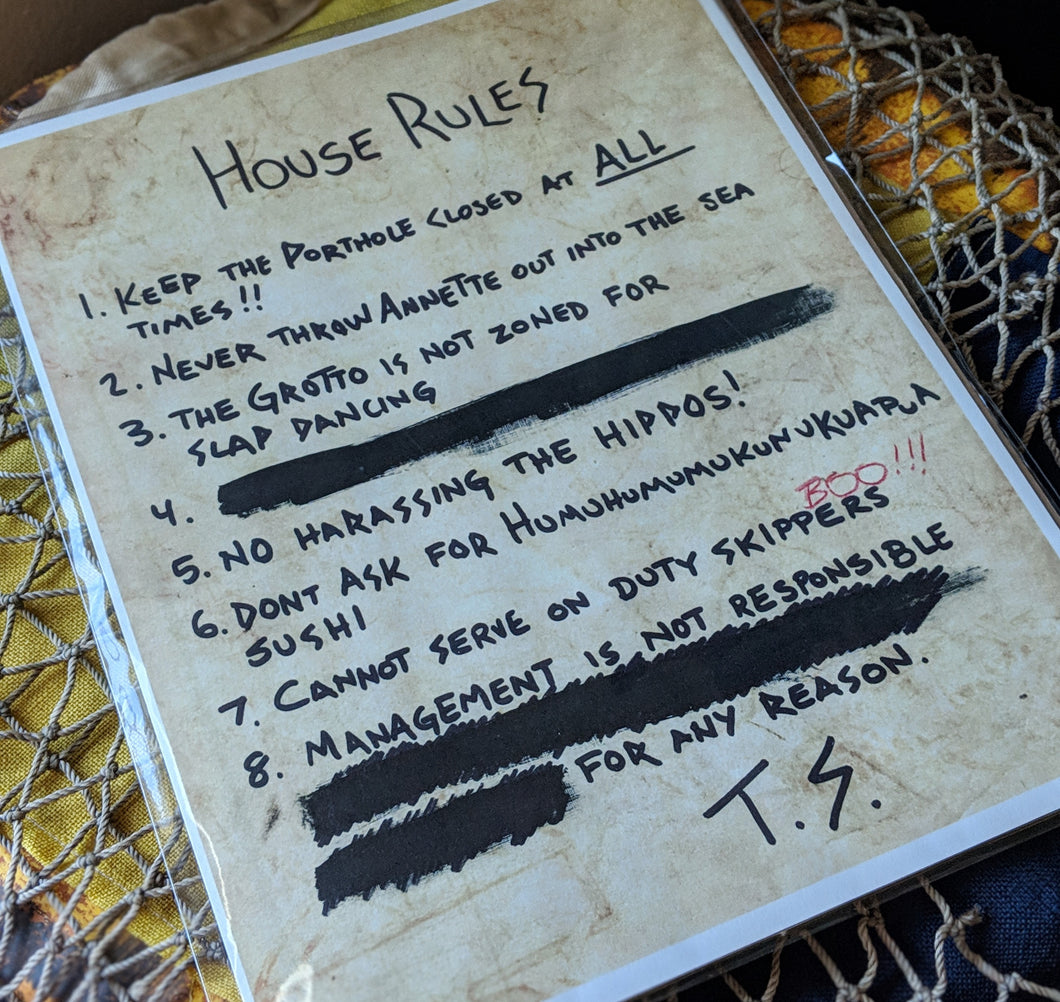 HOUSE RULES
1. KEEP THE PORTHOLE CLOSED AT ALL
TIMES!!
2. NEVER THROW ANNETTE OUT INTO THE SEA
3. THE GROTTO IS NOT ZONED FOR
SLAP DANCING
4.
5. NO HARASSING THE HIPPOS!
6. DONT ASK FOR HUMUHUMUMUKUNUKUAPUA
SUSHI
BOO!!!
7. CANNOT SERVE ON DUTY SKIPPERS
8. MANAGEMENT IS NOT RESPONSIBLE
FOR ANY REASON.
T.S.